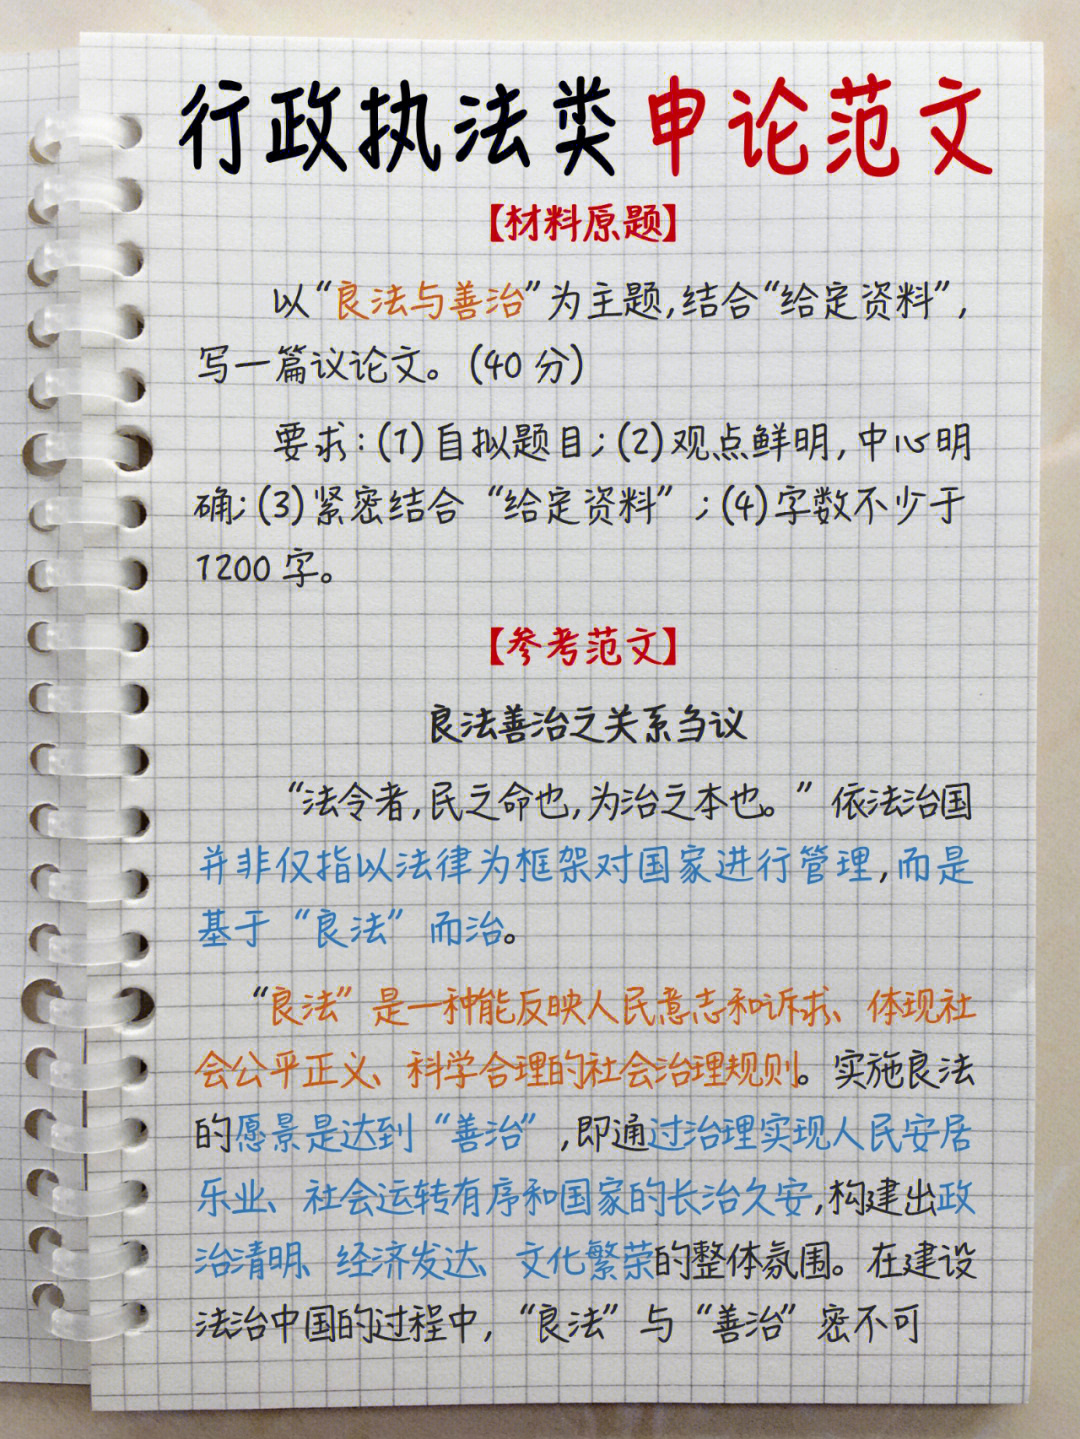 行政执法类申论范文
【材料原题】
以“良法与善治”为主题,结合“给定资料”,
写一篇议论文。(40分)
要求:(1)自拟题目;(2)观点鲜明,中心明
确;(3)紧密结合“给定资料”;(4)字数不少于
1200字。
【参考范文】
良法善治之关系刍议
“法令者,民之命也,为治之本也。”依法治国
并非仅指以法律为框架对国家进行管理,而是
基于“良法”而治。
“良法”是一种能反映人民意志和诉求、体现社
会公平正义、科学合理的社会治理规则。实施良法
的愿景是达到“善治”,即通过治理实现人民安居
乐业、社会运转有序和国家的长治久安,构建出政
治清明、经济发达、文化繁荣的整体氛围。在建设
法治中国的过程中,“良法”与“善治”密不可